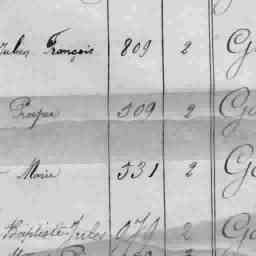 Jules François 809 2 G
Prosper 509 2 G
Marie 531 2 G
Baptiste Jules 979 2 G